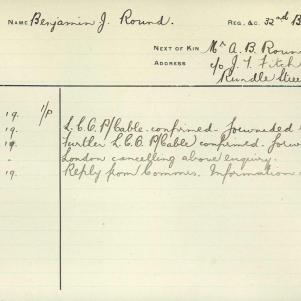 NAME Benjamin J. Round. REG. &C. 32nd B
NEXT OF KIN Mr A. B. Roun
ADDRESS c/o J. T. Fitch
Rundle Stree
19. 1/P
19. L.C.O. P/Cable confirmed. Forwarded t
19. Further L.C.O. P/Cable) confirmed. Forw
- London cancelling above enquiry.
19. Reply from Commrs. Information